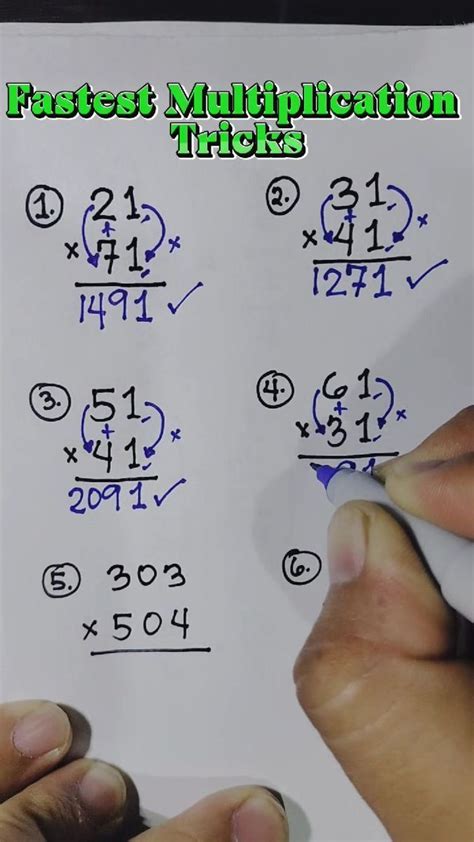 Fastest Multiplication
Tricks
1. 21
+
× 71 ×
1491 ✓
2. 31
+
× 41 ×
1271 ✓
3. 51
+
× 41 ×
2091 ✓
4. 61
+
× 31 ×
91
5. 303
× 504
6.